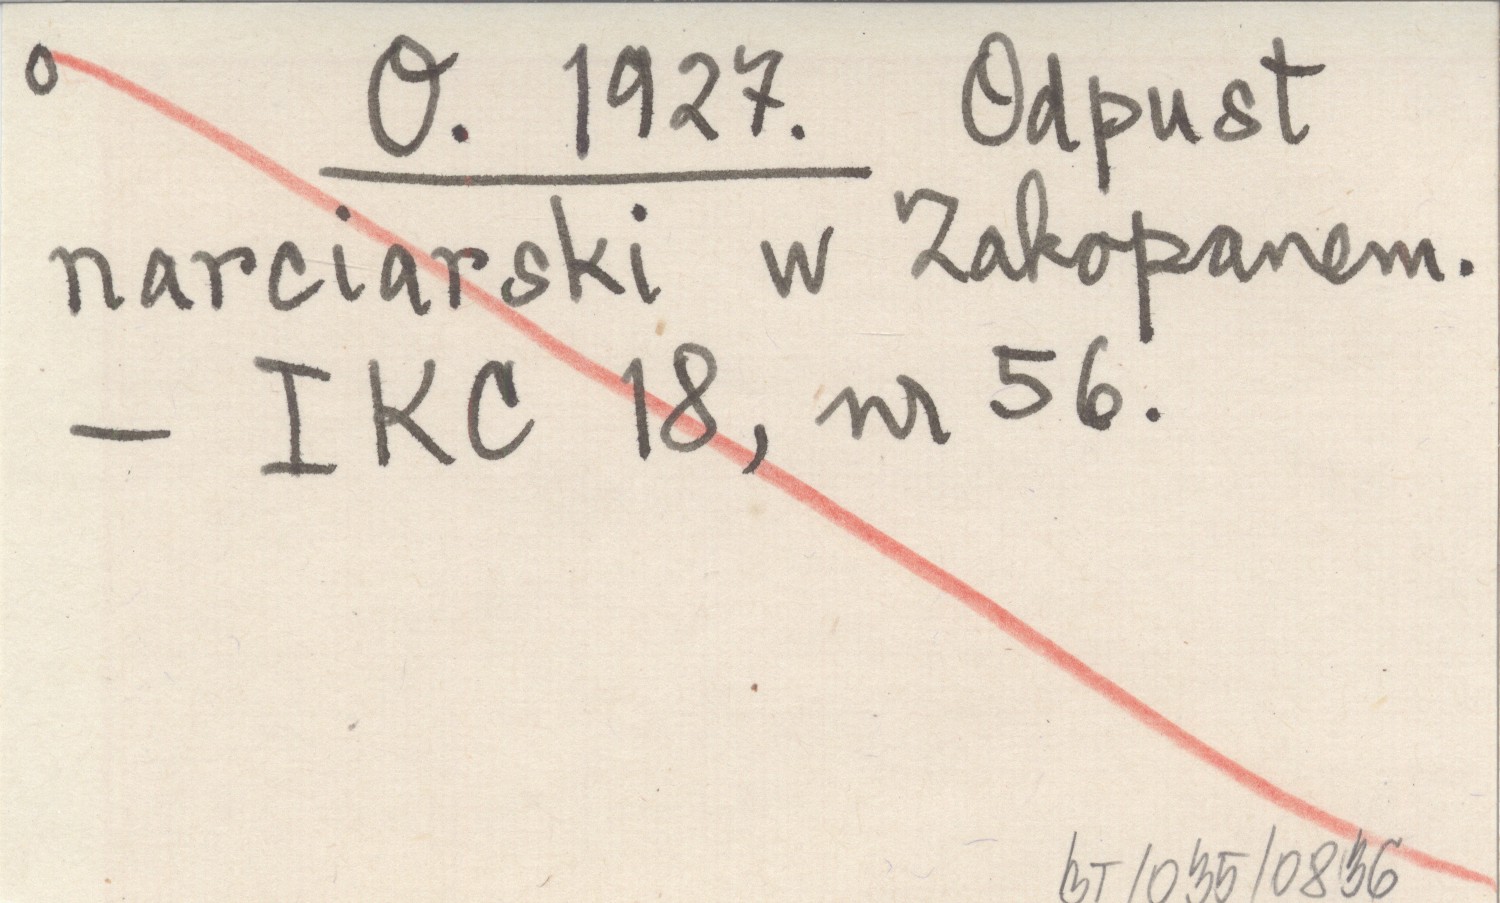 o O. 1927. Odpust
narciarski w Zakopanem.
— IKC 18, nr 56.
BT/035/0836